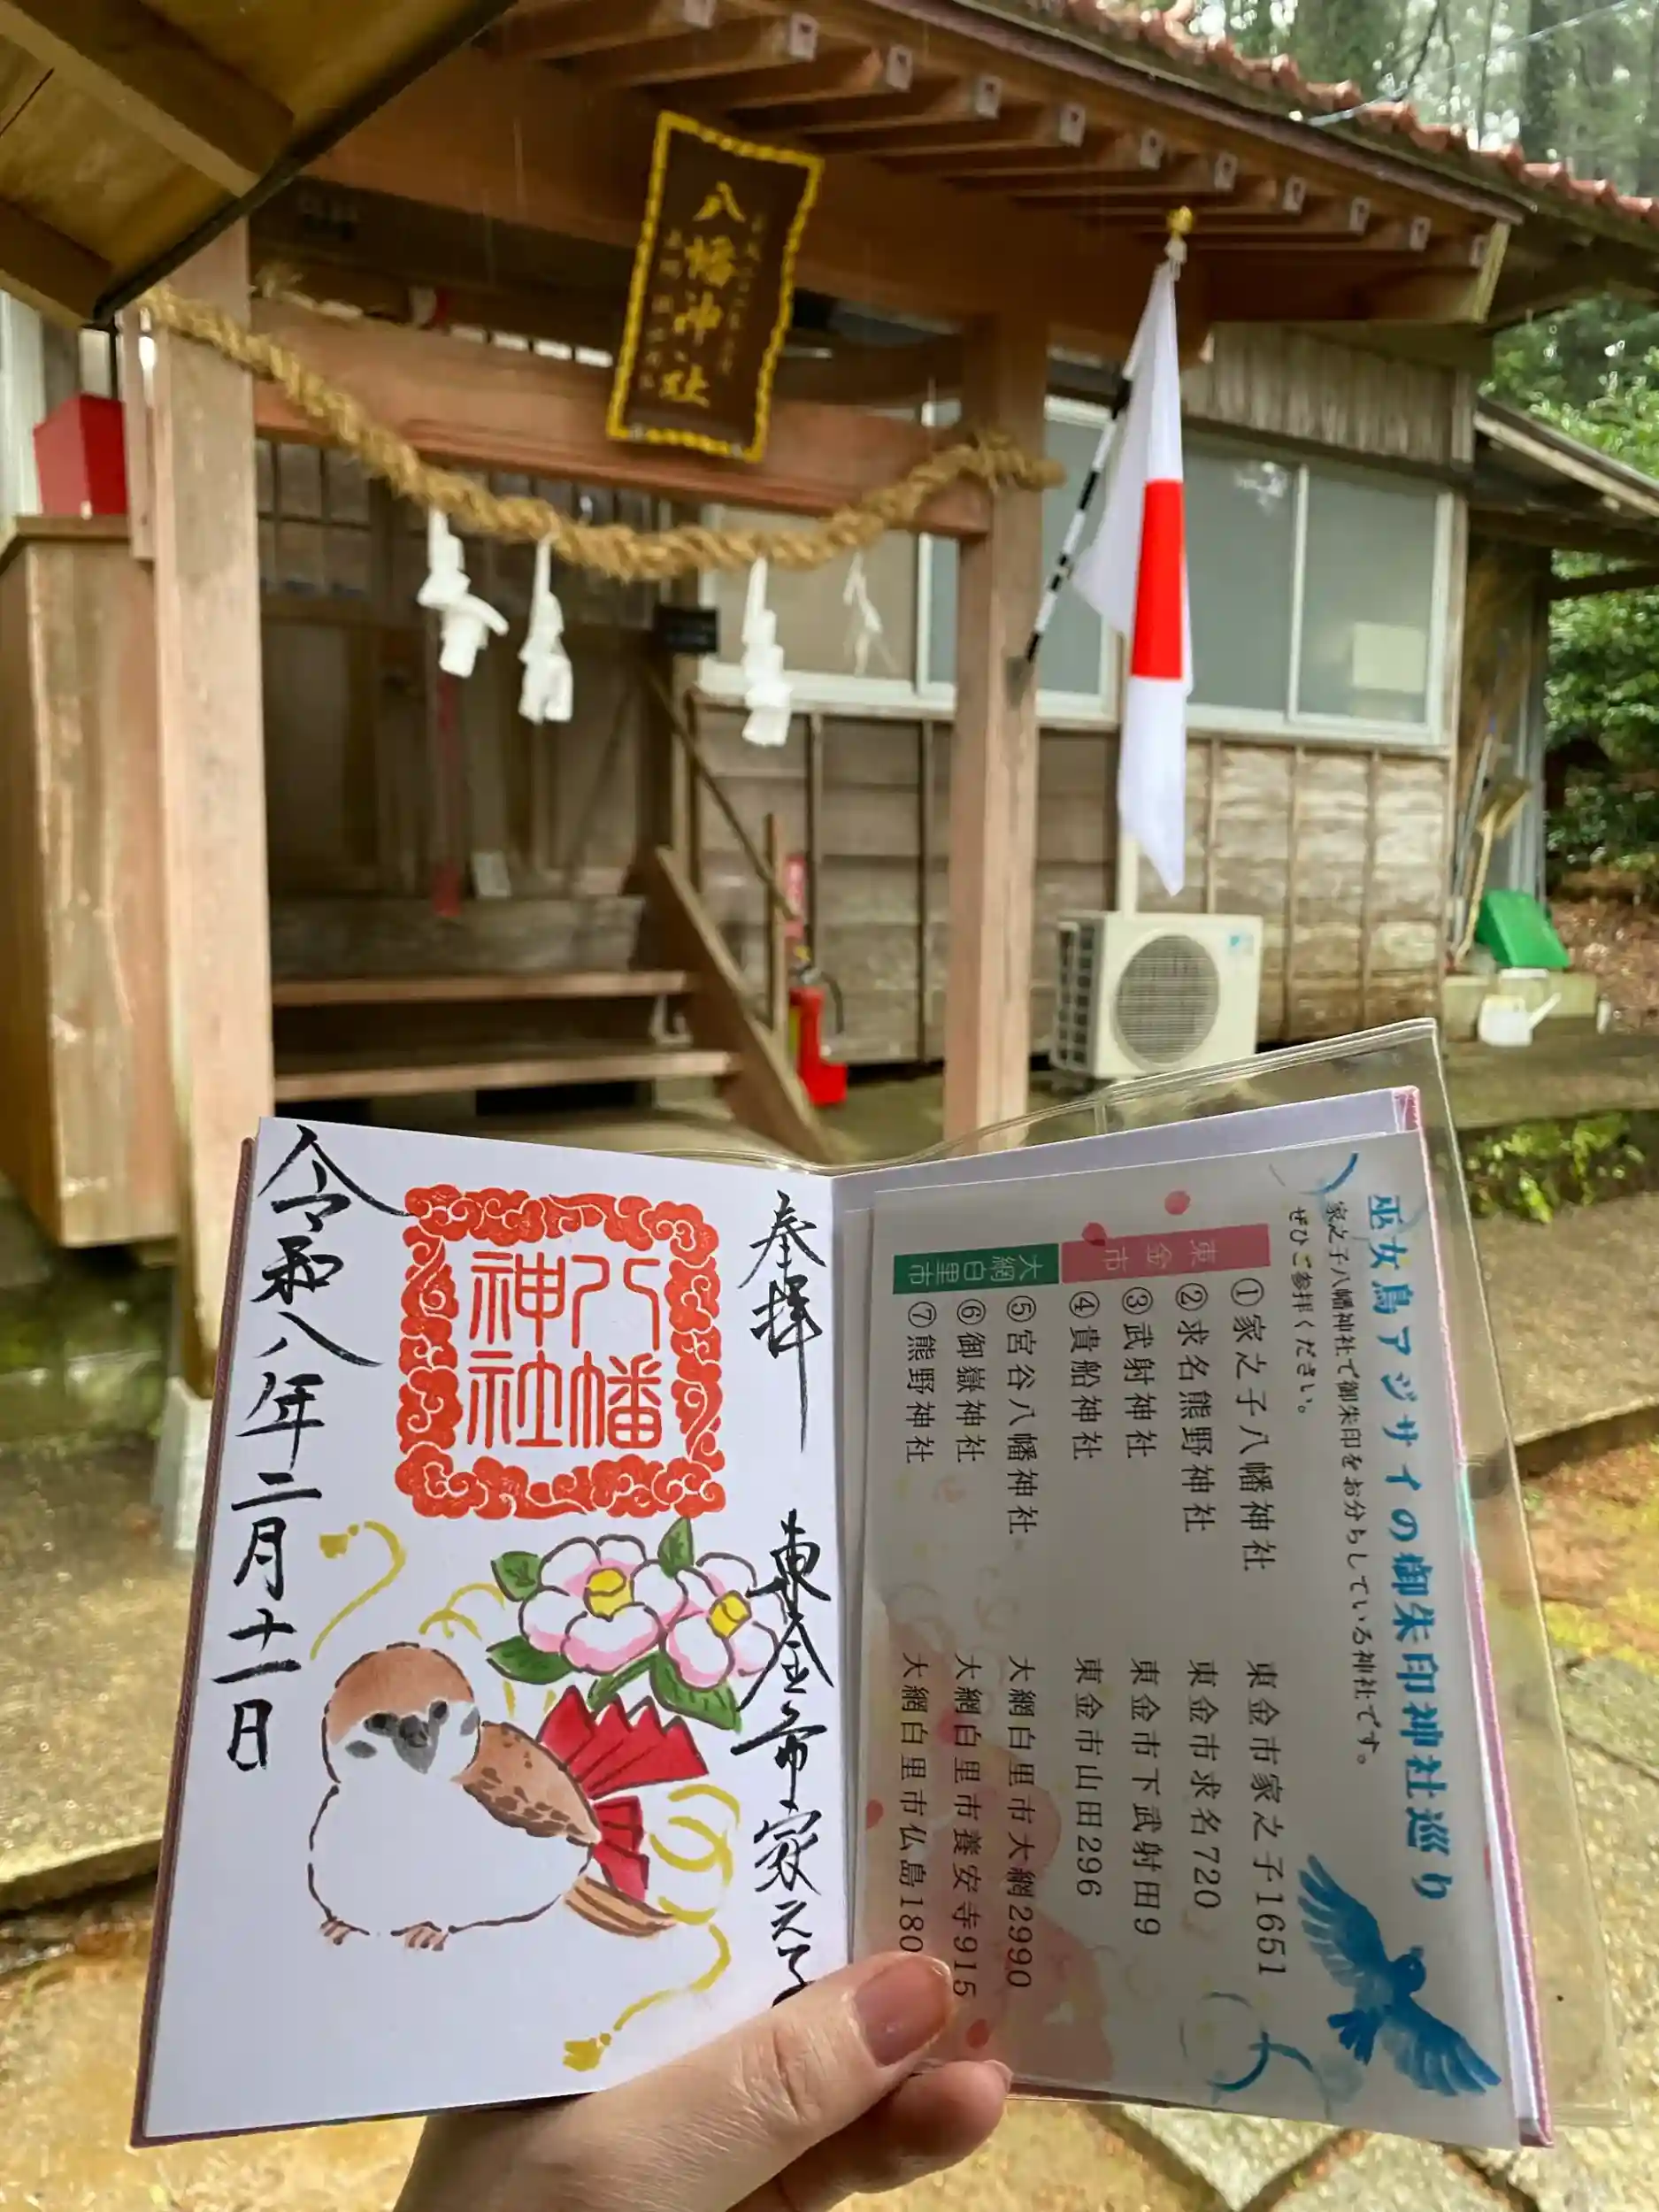 八幡神社
奉拝
東金市家之子
八幡
神社
令和八年二月十一日
巫女鳥アジサイの御朱印神社巡り
家之子八幡神社で御朱印をお分ちしている神社です。
ぜひご参拝ください。
東金市
①家之子八幡神社 東金市家之子1651
②求名熊野神社 東金市求名720
③武射神社 東金市下武射田9
④貴船神社 東金市山田296
大網白里市
⑤宮谷八幡神社 大網白里市大網2990
⑥御嶽神社 大網白里市養安寺915
⑦熊野神社 大網白里市仏島180